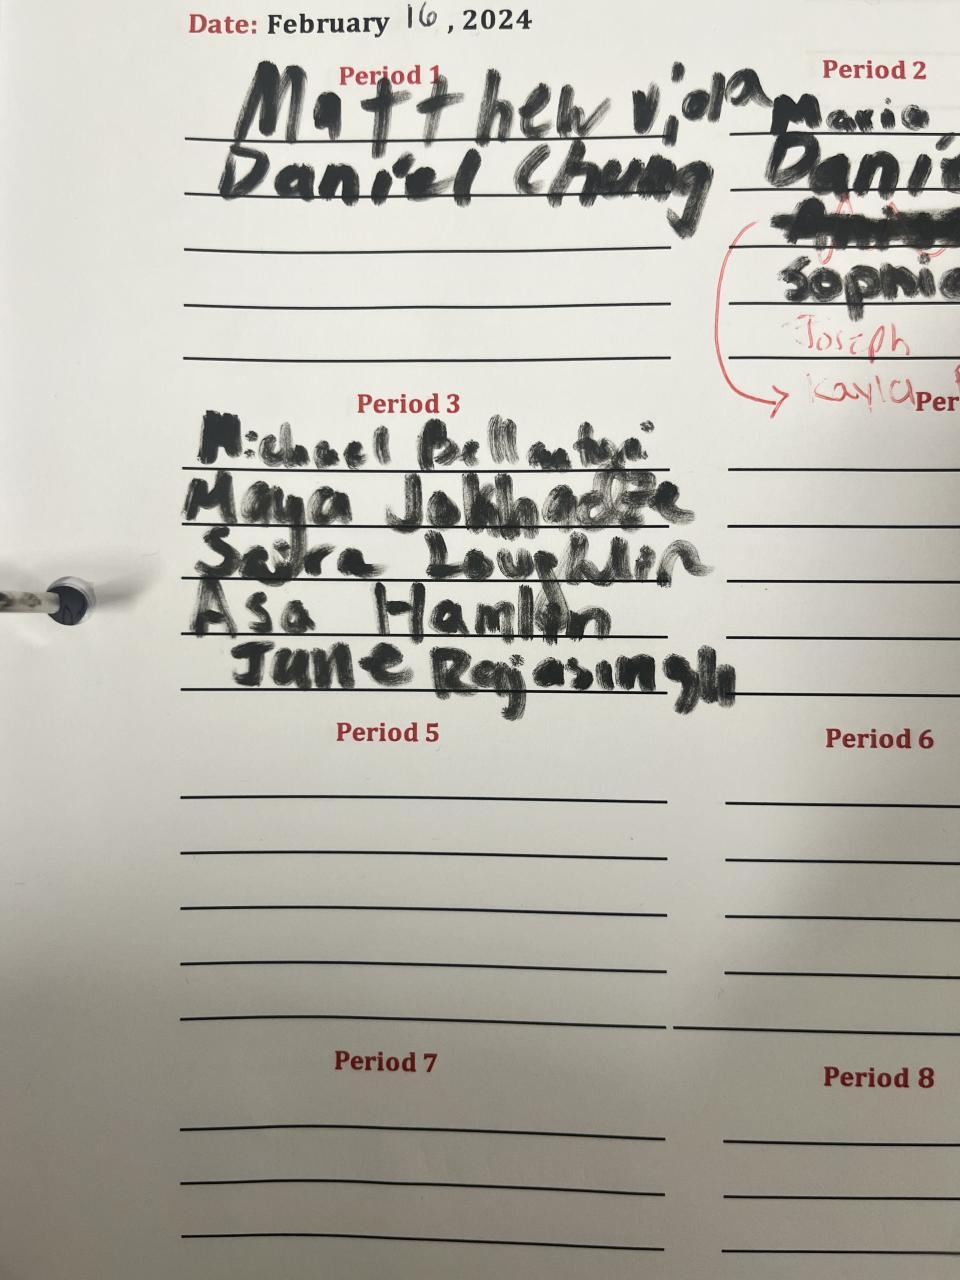 Date: February 16, 2024
Period 1
Matthew Viola
Daniel Chung
Period 2
Maria
Dani
Sophia
Joseph
Kayla
Per
Period 3
Michael
Maya Jokhadze
Loughlin
Asa Hamlin
June Rajasingh
Period 5
Period 6
Period 7
Period 8